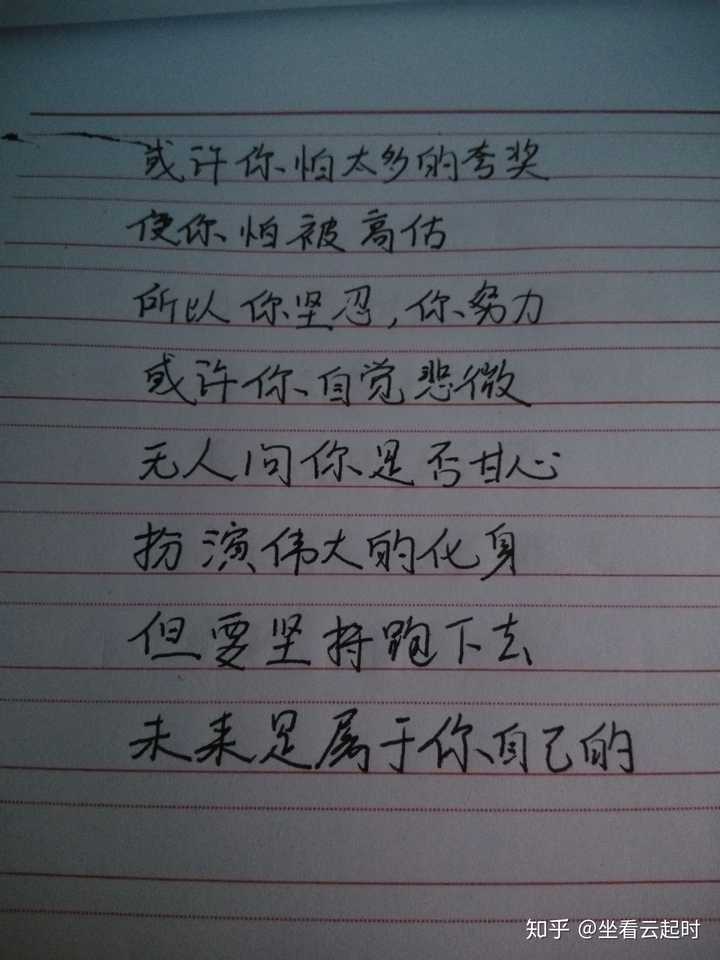 或许你怕太多的夸奖
使你怕被高估
所以你坚忍,你努力
或许你自觉悲微
无人问你是否甘心
扮演伟大的化身
但要坚持跑下去
未来是属于你自己的
知乎 @坐看云起时